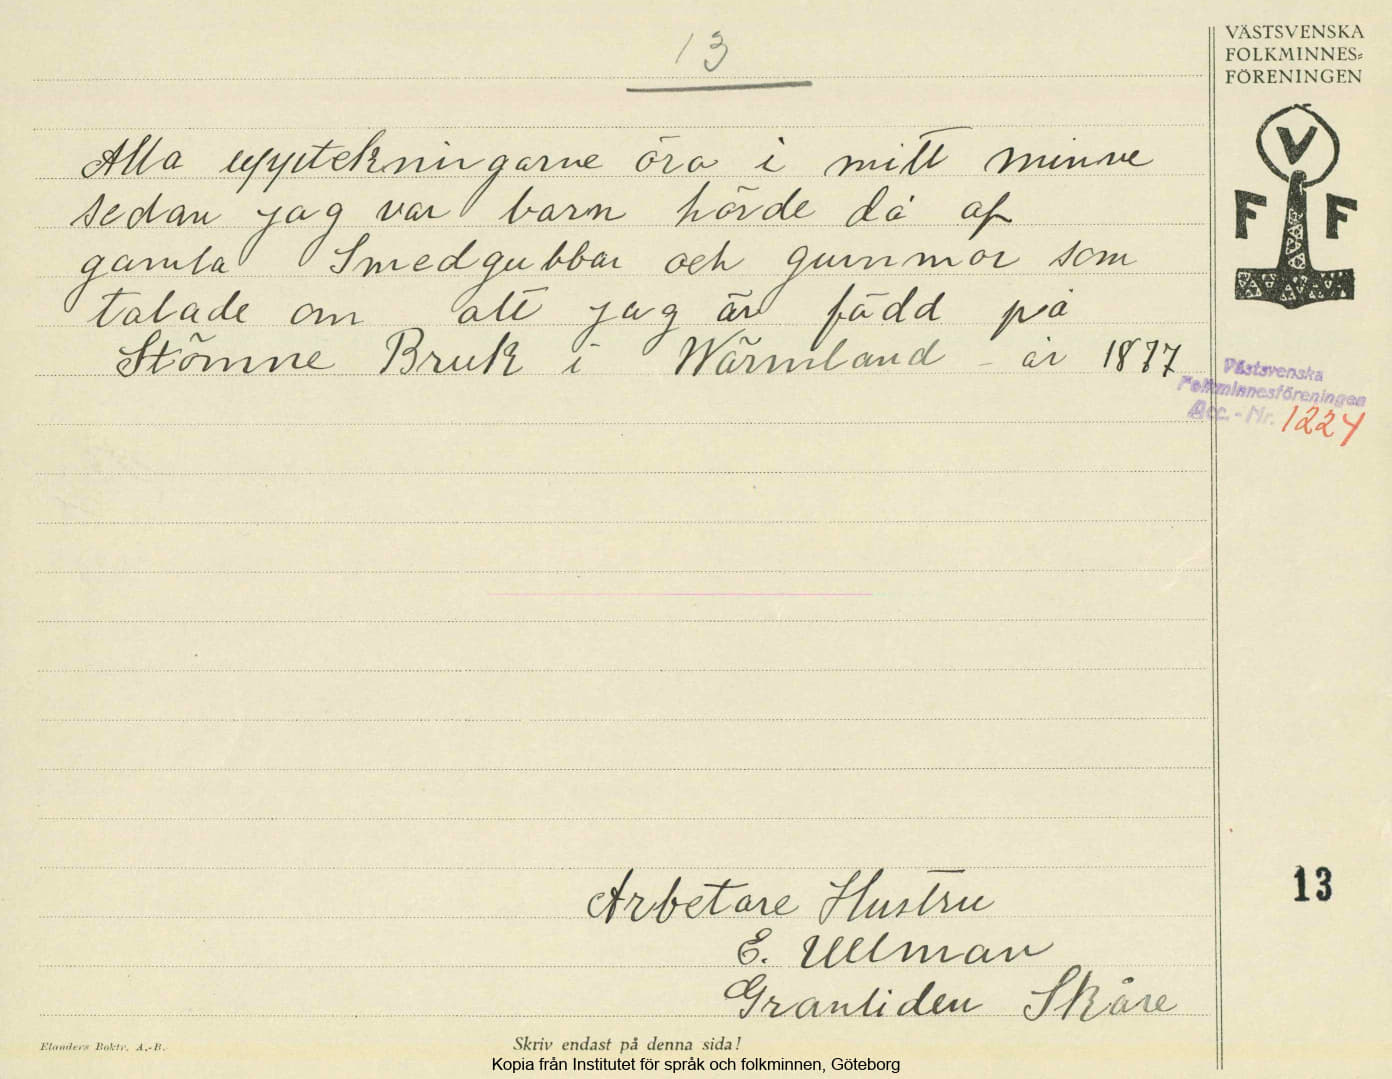 13
VÄSTSVENSKA
FOLKMINNES=
FÖRENINGEN
V
F F
Alla upptekningarne öro i mitt minne
sedan jag var barn hörde då af
gamla Smedgubbar och gummor som
talade om att jag är född på
Stömne Bruk i Wärmland - år 1877
Västsvenska
Folkminnesföreningen
Acc. - Nr. 1224
13
Arbetare Hustru
E. Ullman
Granliden Skåre
Elanders Boktr. A.-B.
Skriv endast på denna sida!
Kopia från Institutet för språk och folkminnen, Göteborg